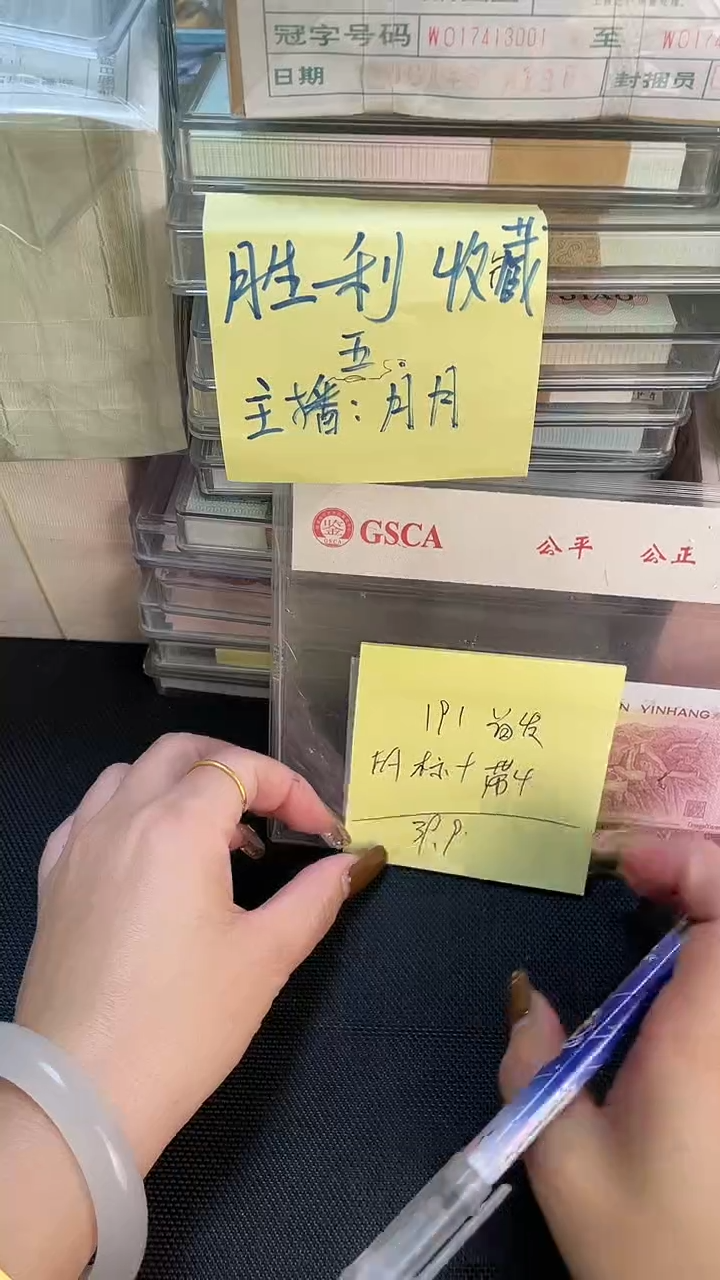 冠字号码 W017413001 至 W0174
日期 封捆员
胜利收藏
五
主播：月月
GSCA 公平 公正
191首发
标十带4
N YINHANG